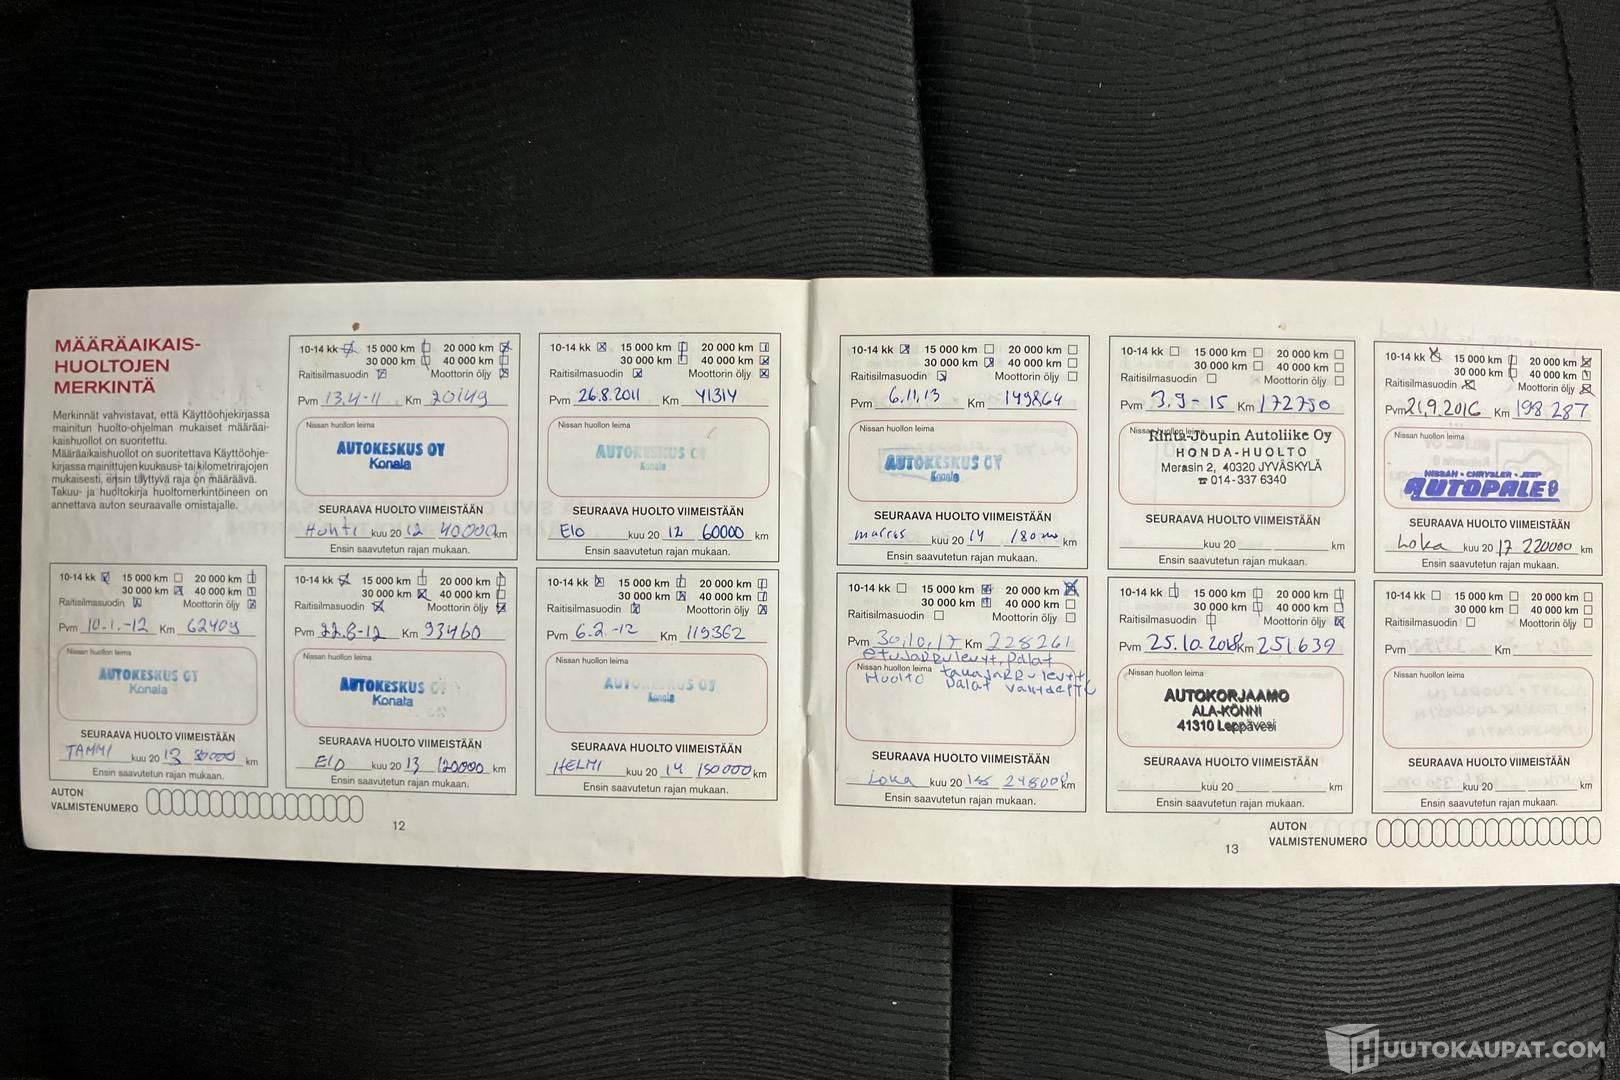 MÄÄRÄAIKAIS-
HUOLTOJEN
MERKINTÄ
Merkinnät vahvistavat, että Käyttöohjekirjassa
mainitun huolto-ohjelman mukaiset määräai-
kaishuollot on suoritettu.
Määräaikaishuollot on suoritettava Käyttöohje-
kirjassa mainittujen kuukausi- tai kilometrirajojen
mukaisesti, ensin täyttyvä raja on määräävä.
Takuu- ja huoltokirja huoltomerkintöineen on
annettava auton seuraavalle omistajalle.
10-14 kk 15 000 km 20 000 km
30 000 km 40 000 km
Raitisilmasuodin Moottorin öljy
Pvm 13.4-11 Km 20149
Nissan huollon leima
AUTOKESKUS OY
Konala
SEURAAVA HUOLTO VIIMEISTÄÄN
Huhti kuu 20 12 40000 km
Ensin saavutetun rajan mukaan.
10-14 kk 15 000 km 20 000 km
30 000 km 40 000 km
Raitisilmasuodin Moottorin öljy
Pvm 26.8.2011 Km 41314
Nissan huollon leima
AUTOKESKUS OY
Konala
SEURAAVA HUOLTO VIIMEISTÄÄN
Elo kuu 20 12 60000 km
Ensin saavutetun rajan mukaan.
10-14 kk 15 000 km 20 000 km
30 000 km 40 000 km
Raitisilmasuodin Moottorin öljy
Pvm 10.1.-12 Km 62409
Nissan huollon leima
AUTOKESKUS OY
Konala
SEURAAVA HUOLTO VIIMEISTÄÄN
TAMMI kuu 20 13 80000 km
Ensin saavutetun rajan mukaan.
10-14 kk 15 000 km 20 000 km
30 000 km 40 000 km
Raitisilmasuodin Moottorin öljy
Pvm 22.8-12 Km 93460
Nissan huollon leima
AUTOKESKUS OY
Konala
SEURAAVA HUOLTO VIIMEISTÄÄN
ELO kuu 20 13 120000 km
Ensin saavutetun rajan mukaan.
10-14 kk 15 000 km 20 000 km
30 000 km 40 000 km
Raitisilmasuodin Moottorin öljy
Pvm 6.2.-12 Km 119362
Nissan huollon leima
AUTOKESKUS OY
Konala
SEURAAVA HUOLTO VIIMEISTÄÄN
HELMI kuu 20 14 150000 km
Ensin saavutetun rajan mukaan.
AUTON
VALMISTENUMERO
12
10-14 kk 15 000 km 20 000 km
30 000 km 40 000 km
Raitisilmasuodin Moottorin öljy
Pvm 6.11.13 Km 149864
Nissan huollon leima
AUTOKESKUS OY
Konala
SEURAAVA HUOLTO VIIMEISTÄÄN
marras kuu 20 14 km
Ensin saavutetun rajan mukaan.
10-14 kk 15 000 km 20 000 km
30 000 km 40 000 km
Raitisilmasuodin Moottorin öljy
Pvm 3.9-15 Km 172750
Nissan huollon leima
Rinta-Joupin Autoliike Oy
HONDA-HUOLTO
Merasin 2, 40320 JYVÄSKYLÄ
☎ 014-337 6340
SEURAAVA HUOLTO VIIMEISTÄÄN
kuu 20 km
Ensin saavutetun rajan mukaan.
10-14 kk 15 000 km 20 000 km
30 000 km 40 000 km
Raitisilmasuodin Moottorin öljy
Pvm 21.9.2016 Km 198 287
Nissan huollon leima
NISSAN - CHRYSLER - JEEP
AUTOPALE
SEURAAVA HUOLTO VIIMEISTÄÄN
Loka kuu 20 17 220000 km
Ensin saavutetun rajan mukaan.
10-14 kk 15 000 km 20 000 km
30 000 km 40 000 km
Raitisilmasuodin Moottorin öljy
Pvm 30.10.17 Km 228261
etujarrulevyt, palat
Nissan huollon leima takajarrulevyt
Huolto palat vaihdettu
SEURAAVA HUOLTO VIIMEISTÄÄN
Loka kuu 20 km
Ensin saavutetun rajan mukaan.
10-14 kk 15 000 km 20 000 km
30 000 km 40 000 km
Raitisilmasuodin Moottorin öljy
Pvm 25.10.2018 Km 251.639
Nissan huollon leima
AUTOKORJAAMO
ALA-KÖNNI
41310 Leppävesi
SEURAAVA HUOLTO VIIMEISTÄÄN
kuu 20 km
Ensin saavutetun rajan mukaan.
10-14 kk 15 000 km 20 000 km
30 000 km 40 000 km
Raitisilmasuodin Moottorin öljy
Pvm Km
Nissan huollon leima
SEURAAVA HUOLTO VIIMEISTÄÄN
kuu 20 km
Ensin saavutetun rajan mukaan.
13
AUTON
VALMISTENUMERO
HUUTOKAUPAT.COM